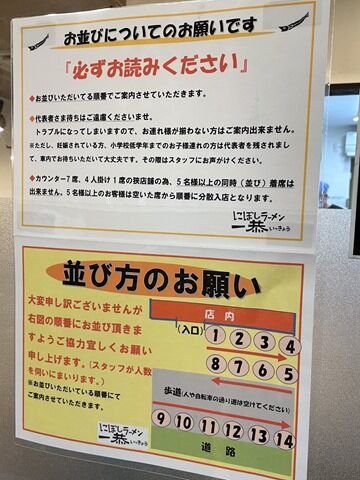 お並びについてのお願いです
『必ずお読みください』
◆お並びいただいてる順番でご案内させていただきます。
◆代表者さま待ちはご遠慮くださいませ。
トラブルになってしまいますので、お連れ様が揃わない方はご案内出来ません。
※ただし、妊娠されている方、小学校低学年までのお子様連れの方は代表者を残されまし
て、車内でお待ちいただいて大丈夫です。その際はスタッフにお声がけください。
◆カウンター7席、4人掛け1席の狭店舗の為、5名様以上の同時（並び）着席は
出来ません。5名様以上のお客様は空いた席から順番に分散入店となります。
にぼしラーメン
一恭 いっきょう
並び方のお願い
大変申し訳ございませんが
右図の順番にお並び頂きま
すようご協力宜しくお願い
申し上げます。（スタッフが人数
を伺いにまいります。）
※お並びいただいている順番にて
ご案内させていただきます。
にぼしラーメン
一恭 いっきょう
店内
（入口）
1 2 3 4
8 7 6 5
歩道（人や自転車の通り道は空けてください）
9 10 11 12 13 14
道路